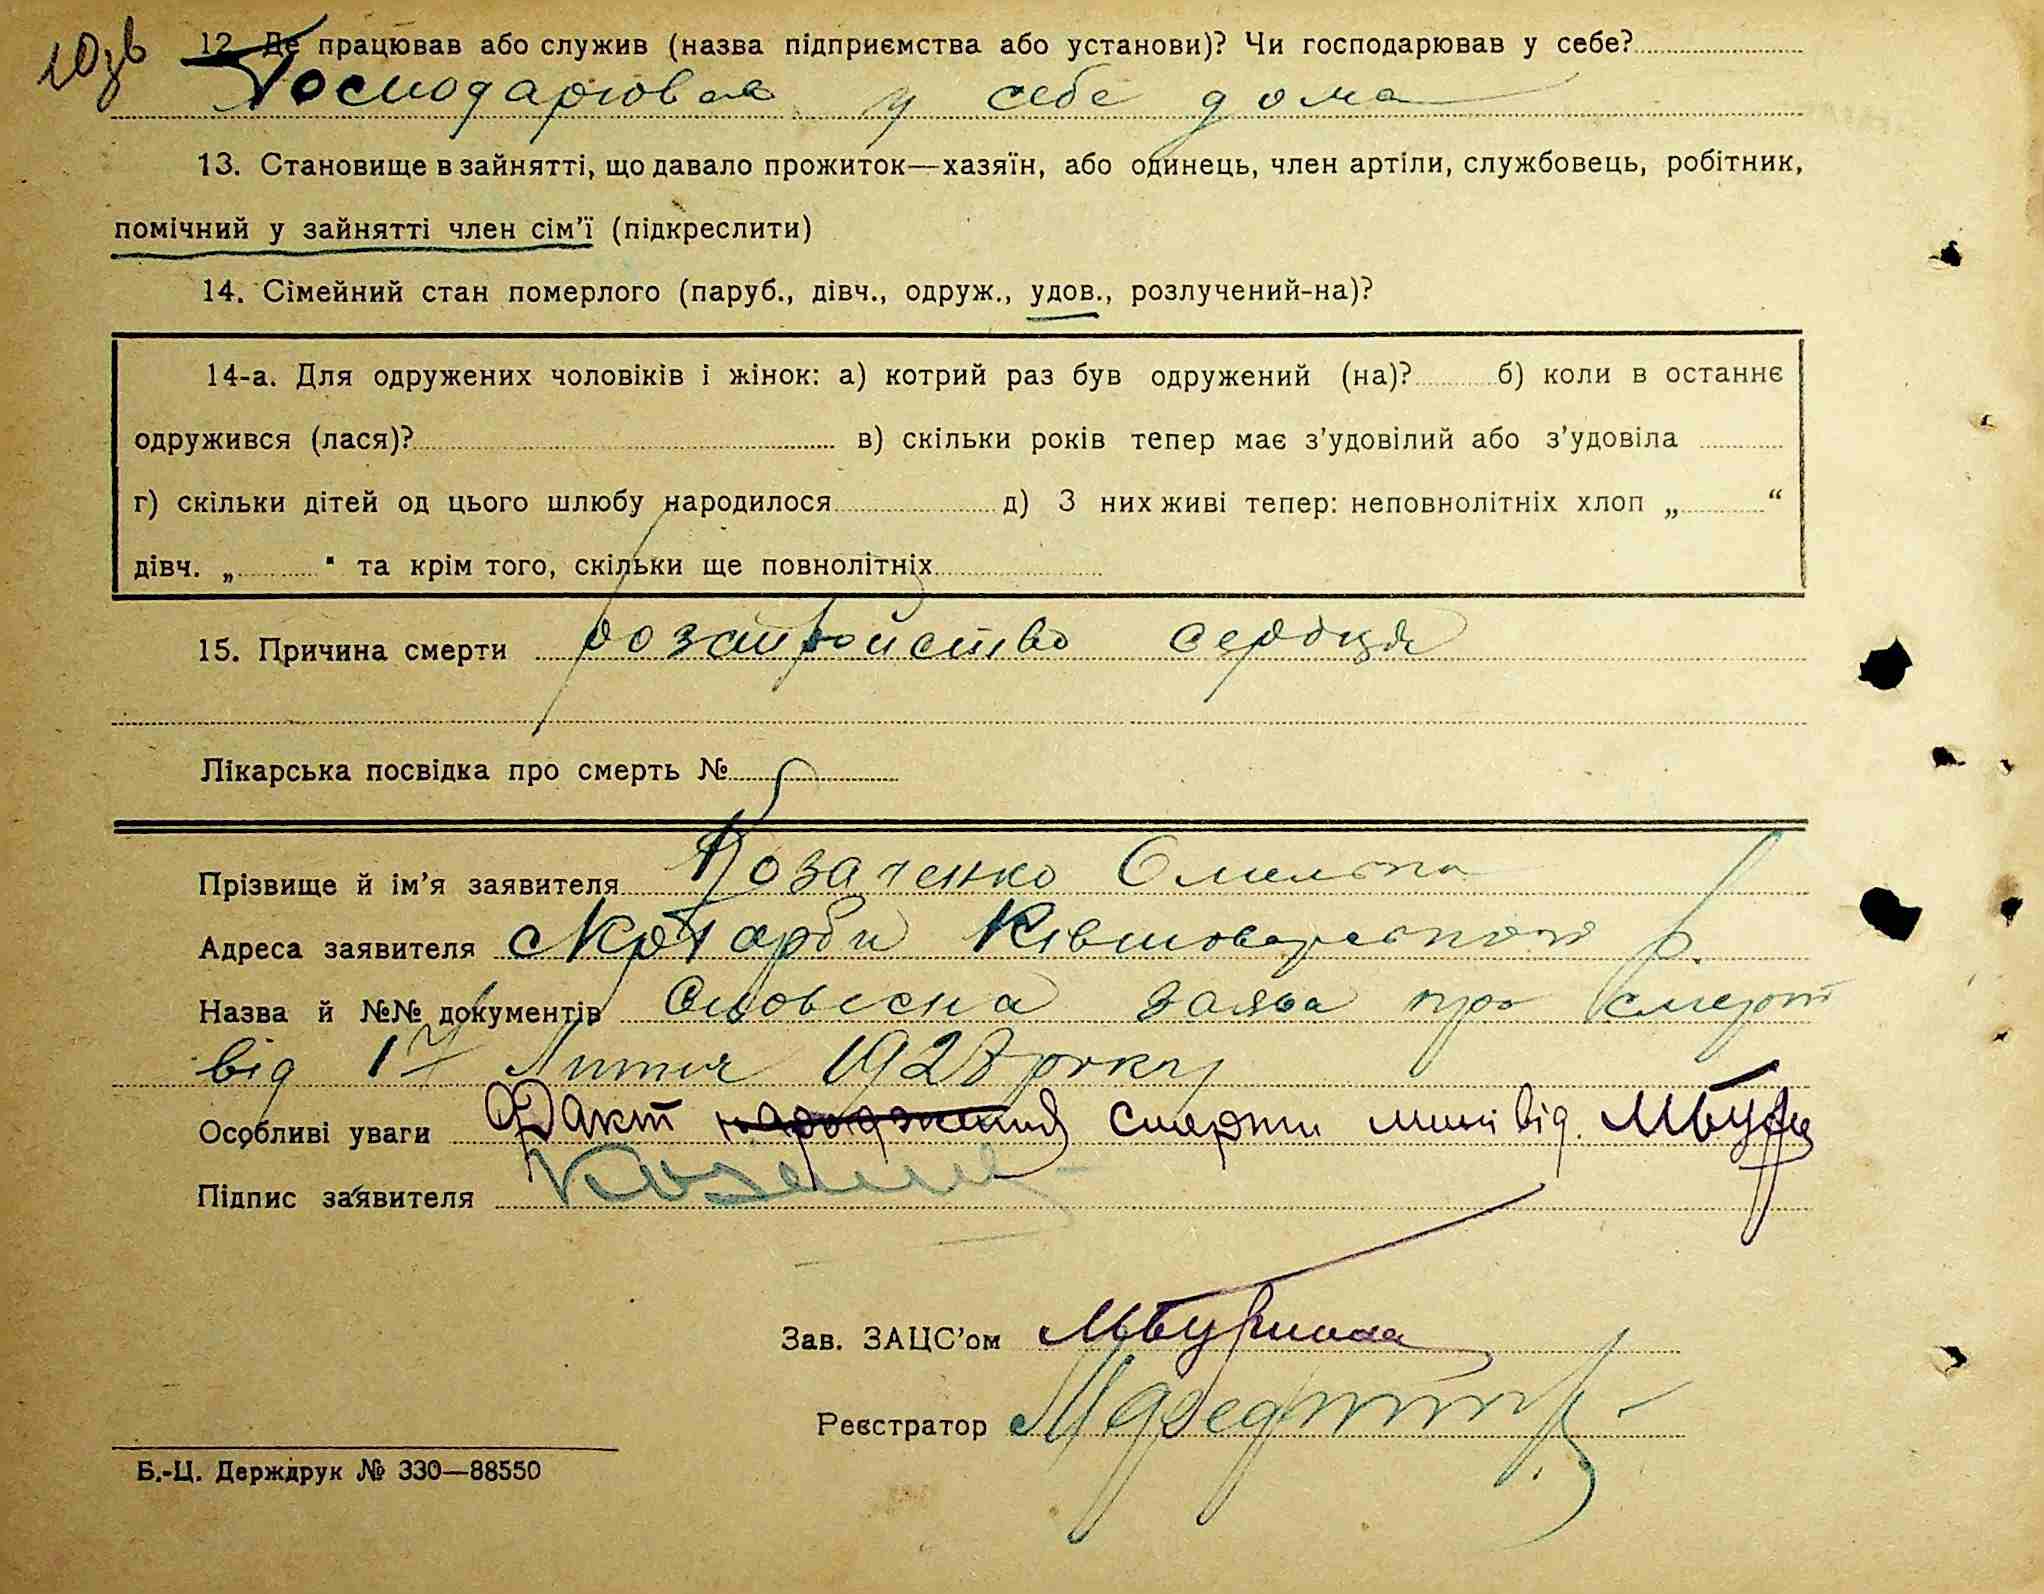 12. Де працював або служив (назва підприємства або установи)? Чи господарював у себе?
Господарювала у себе дома
13. Становище в зайнятті, що давало прожиток—хазяїн, або одинець, член артіли, службовець, робітник,
помічний у зайнятті член сім'ї (підкреслити)
14. Сімейний стан померлого (паруб., дівч., одруж., удов., розлучений-на)?
14-а. Для одружених чоловіків і жінок: а) котрий раз був одружений (на)? б) коли в останнє
одружився (лася)? в) скільки років тепер має з'удовілий або з'удовіла
г) скільки дітей од цього шлюбу народилося д) З них живі тепер: неповнолітніх хлоп „ “
дівч. „ “ та крім того, скільки ще повнолітніх
15. Причина смерти розстройство сердця
Лікарська посвідка про смерть №
Прізвище й ім'я заявителя Козаченко
Адреса заявителя
Назва й №№ документів Словесна заява про смерть
від 17 Липня 1928 року
Особливі уваги Факт народження смерти мені від.
Підпис заявителя
Зав. ЗАЦС'ом
Реєстратор
Б.-Ц. Держдрук № 330—88550